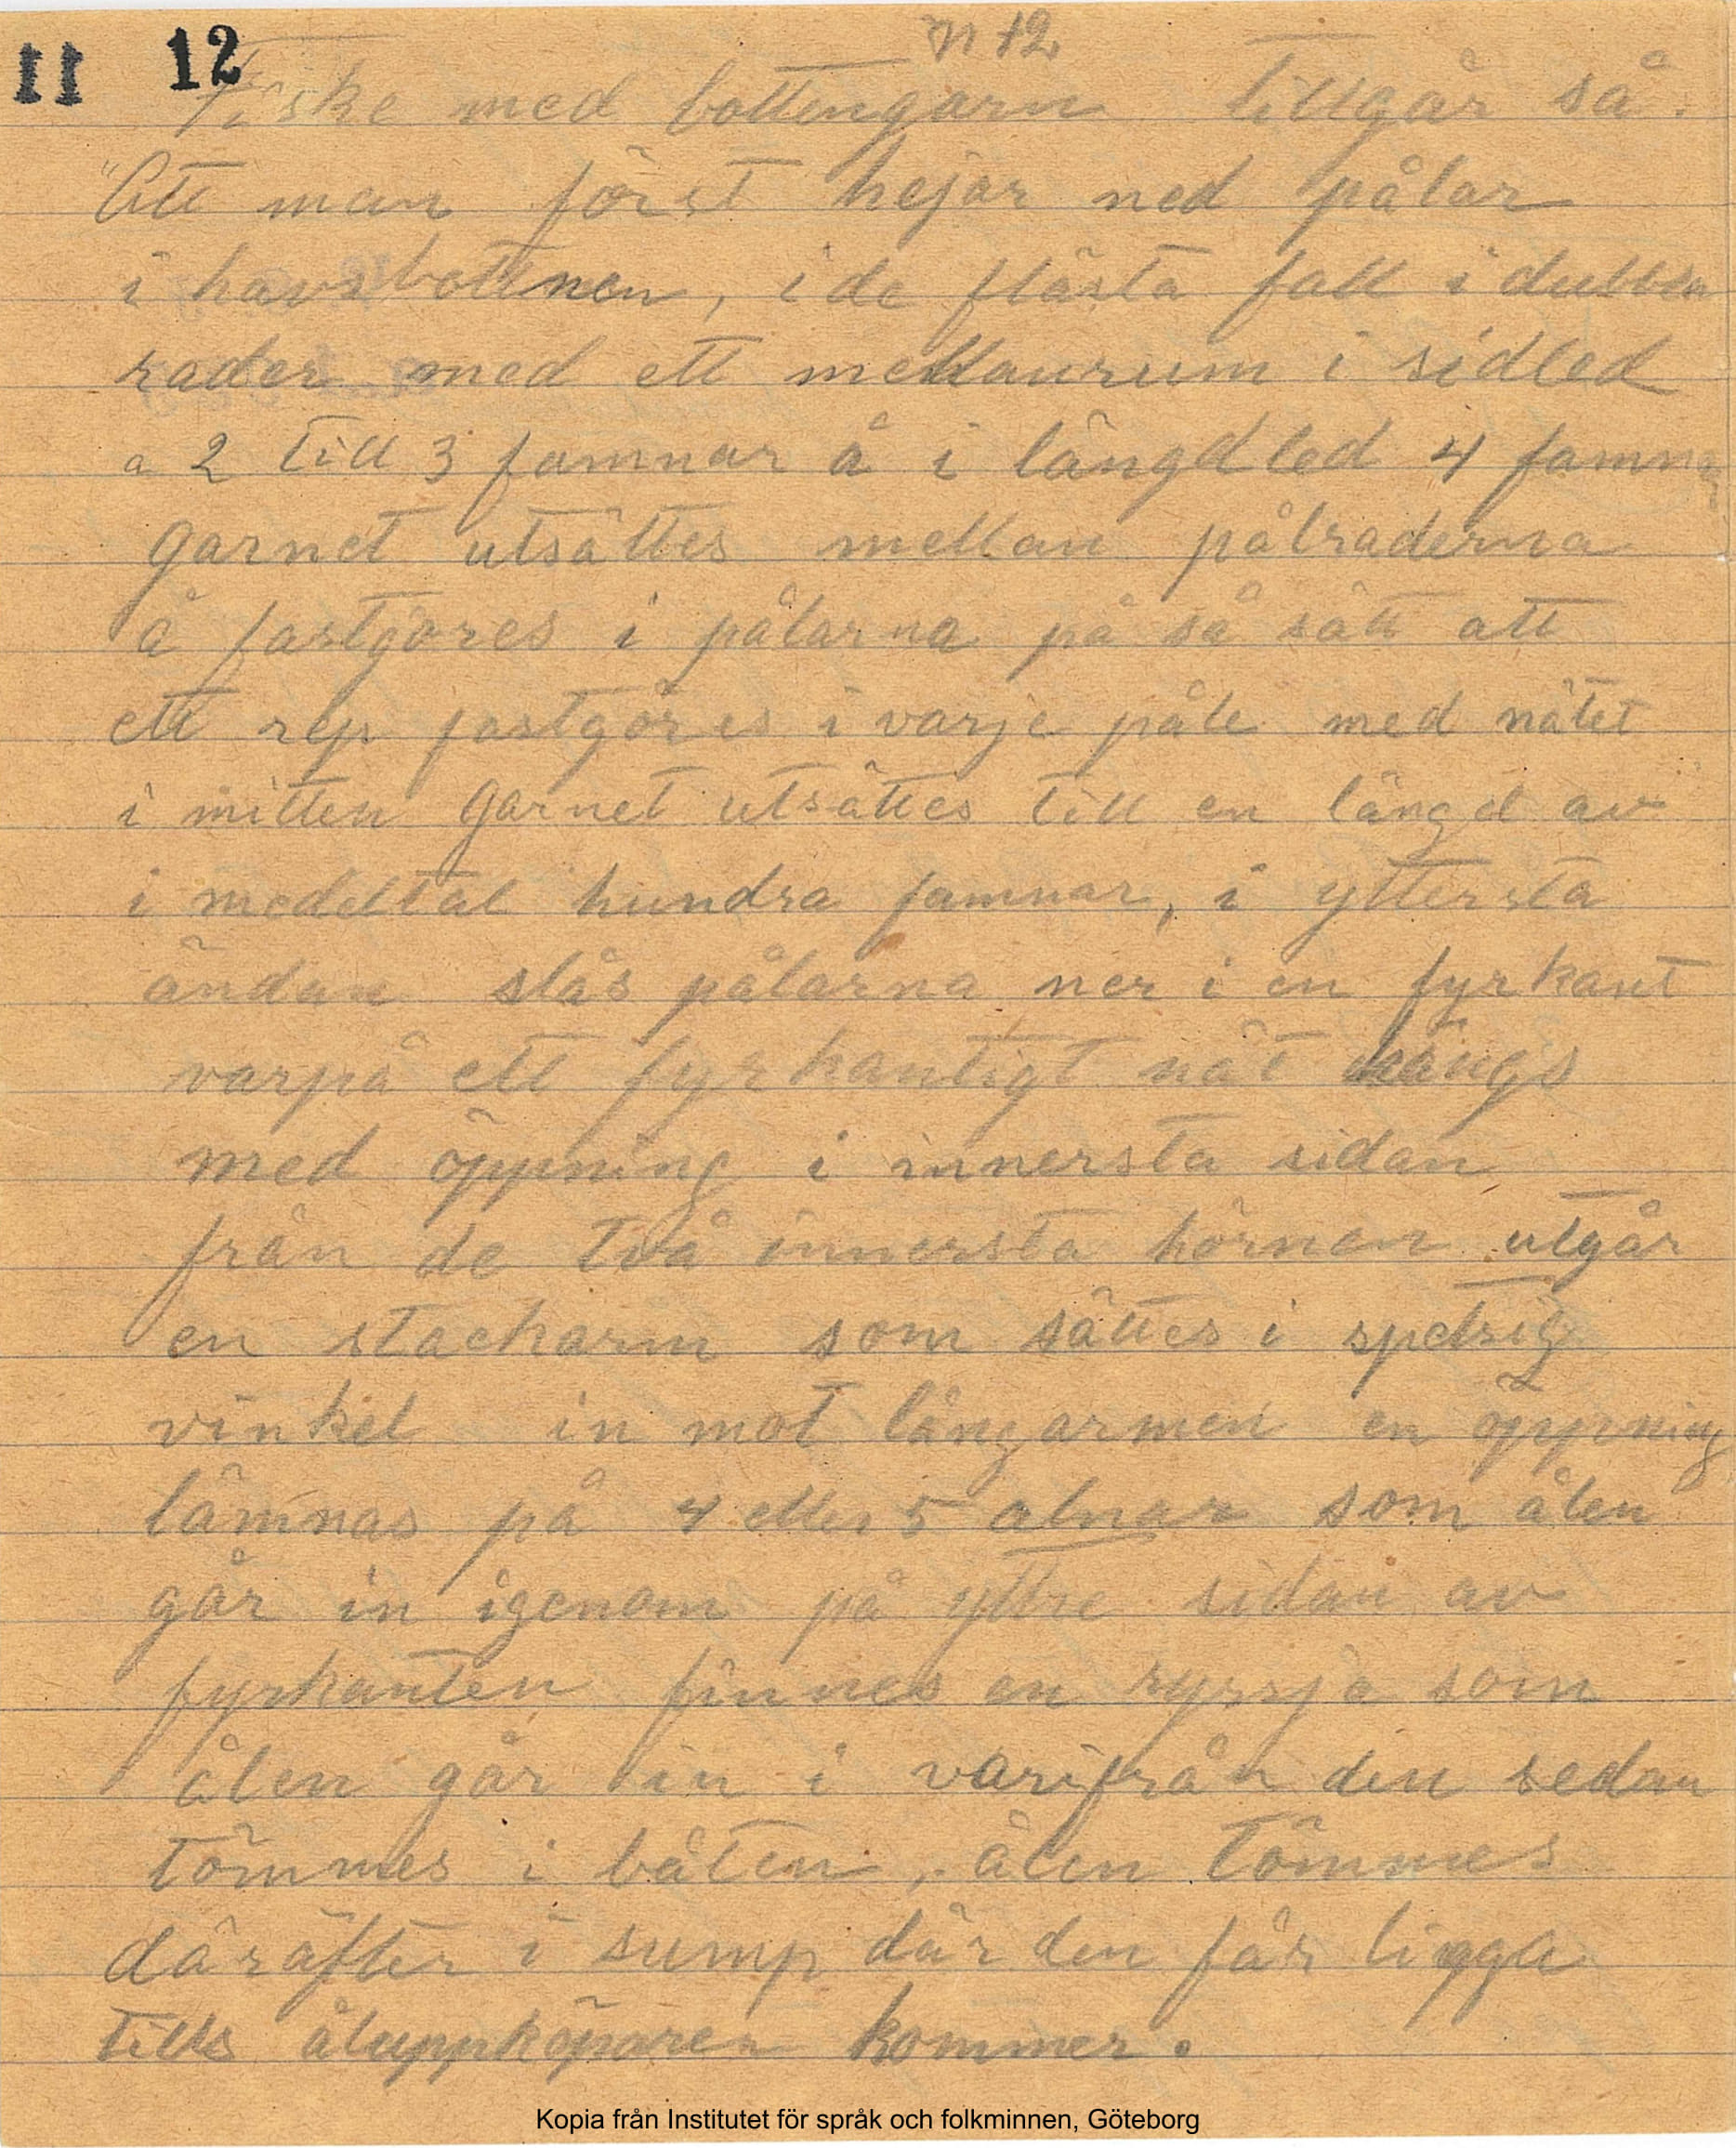 11 12 n 12
Fiske med bottengarn tillgår så.
"Att man först hejar ned pålar
i havsbottnen, i de flästa fall i dubbla
rader med ett mellanrum i sidled
a 2 till 3 famnar å i längdled 4 famnar
garnet utsättes mellan pålraderna
å fastgöres i pålarna på så sätt att
ett rep fastgöres i varje påle med nätet
i mitten garnet utsättes till en längd av
i medeltal hundra famnar, i yttersta
ändan slås pålarna ner i en fyrkant
varpå ett fyrkantigt nät hängs
med öppning i innersta sidan
från de två innersta hörnen utgår
en stackarm som sättes i spetsig
vinkel in mot långarmen en öppning
lämnas på 4 eller 5 alnar som ålen
går in igenom på yttre sidan av
fyrkanten finnes en ryssja som
ålen går in i varifrån den sedan
tömmes i båten, ålen tömmes
däräfter i sump där den får ligga
tills åluppköparen kommer.
Kopia från Institutet för språk och folkminnen, Göteborg